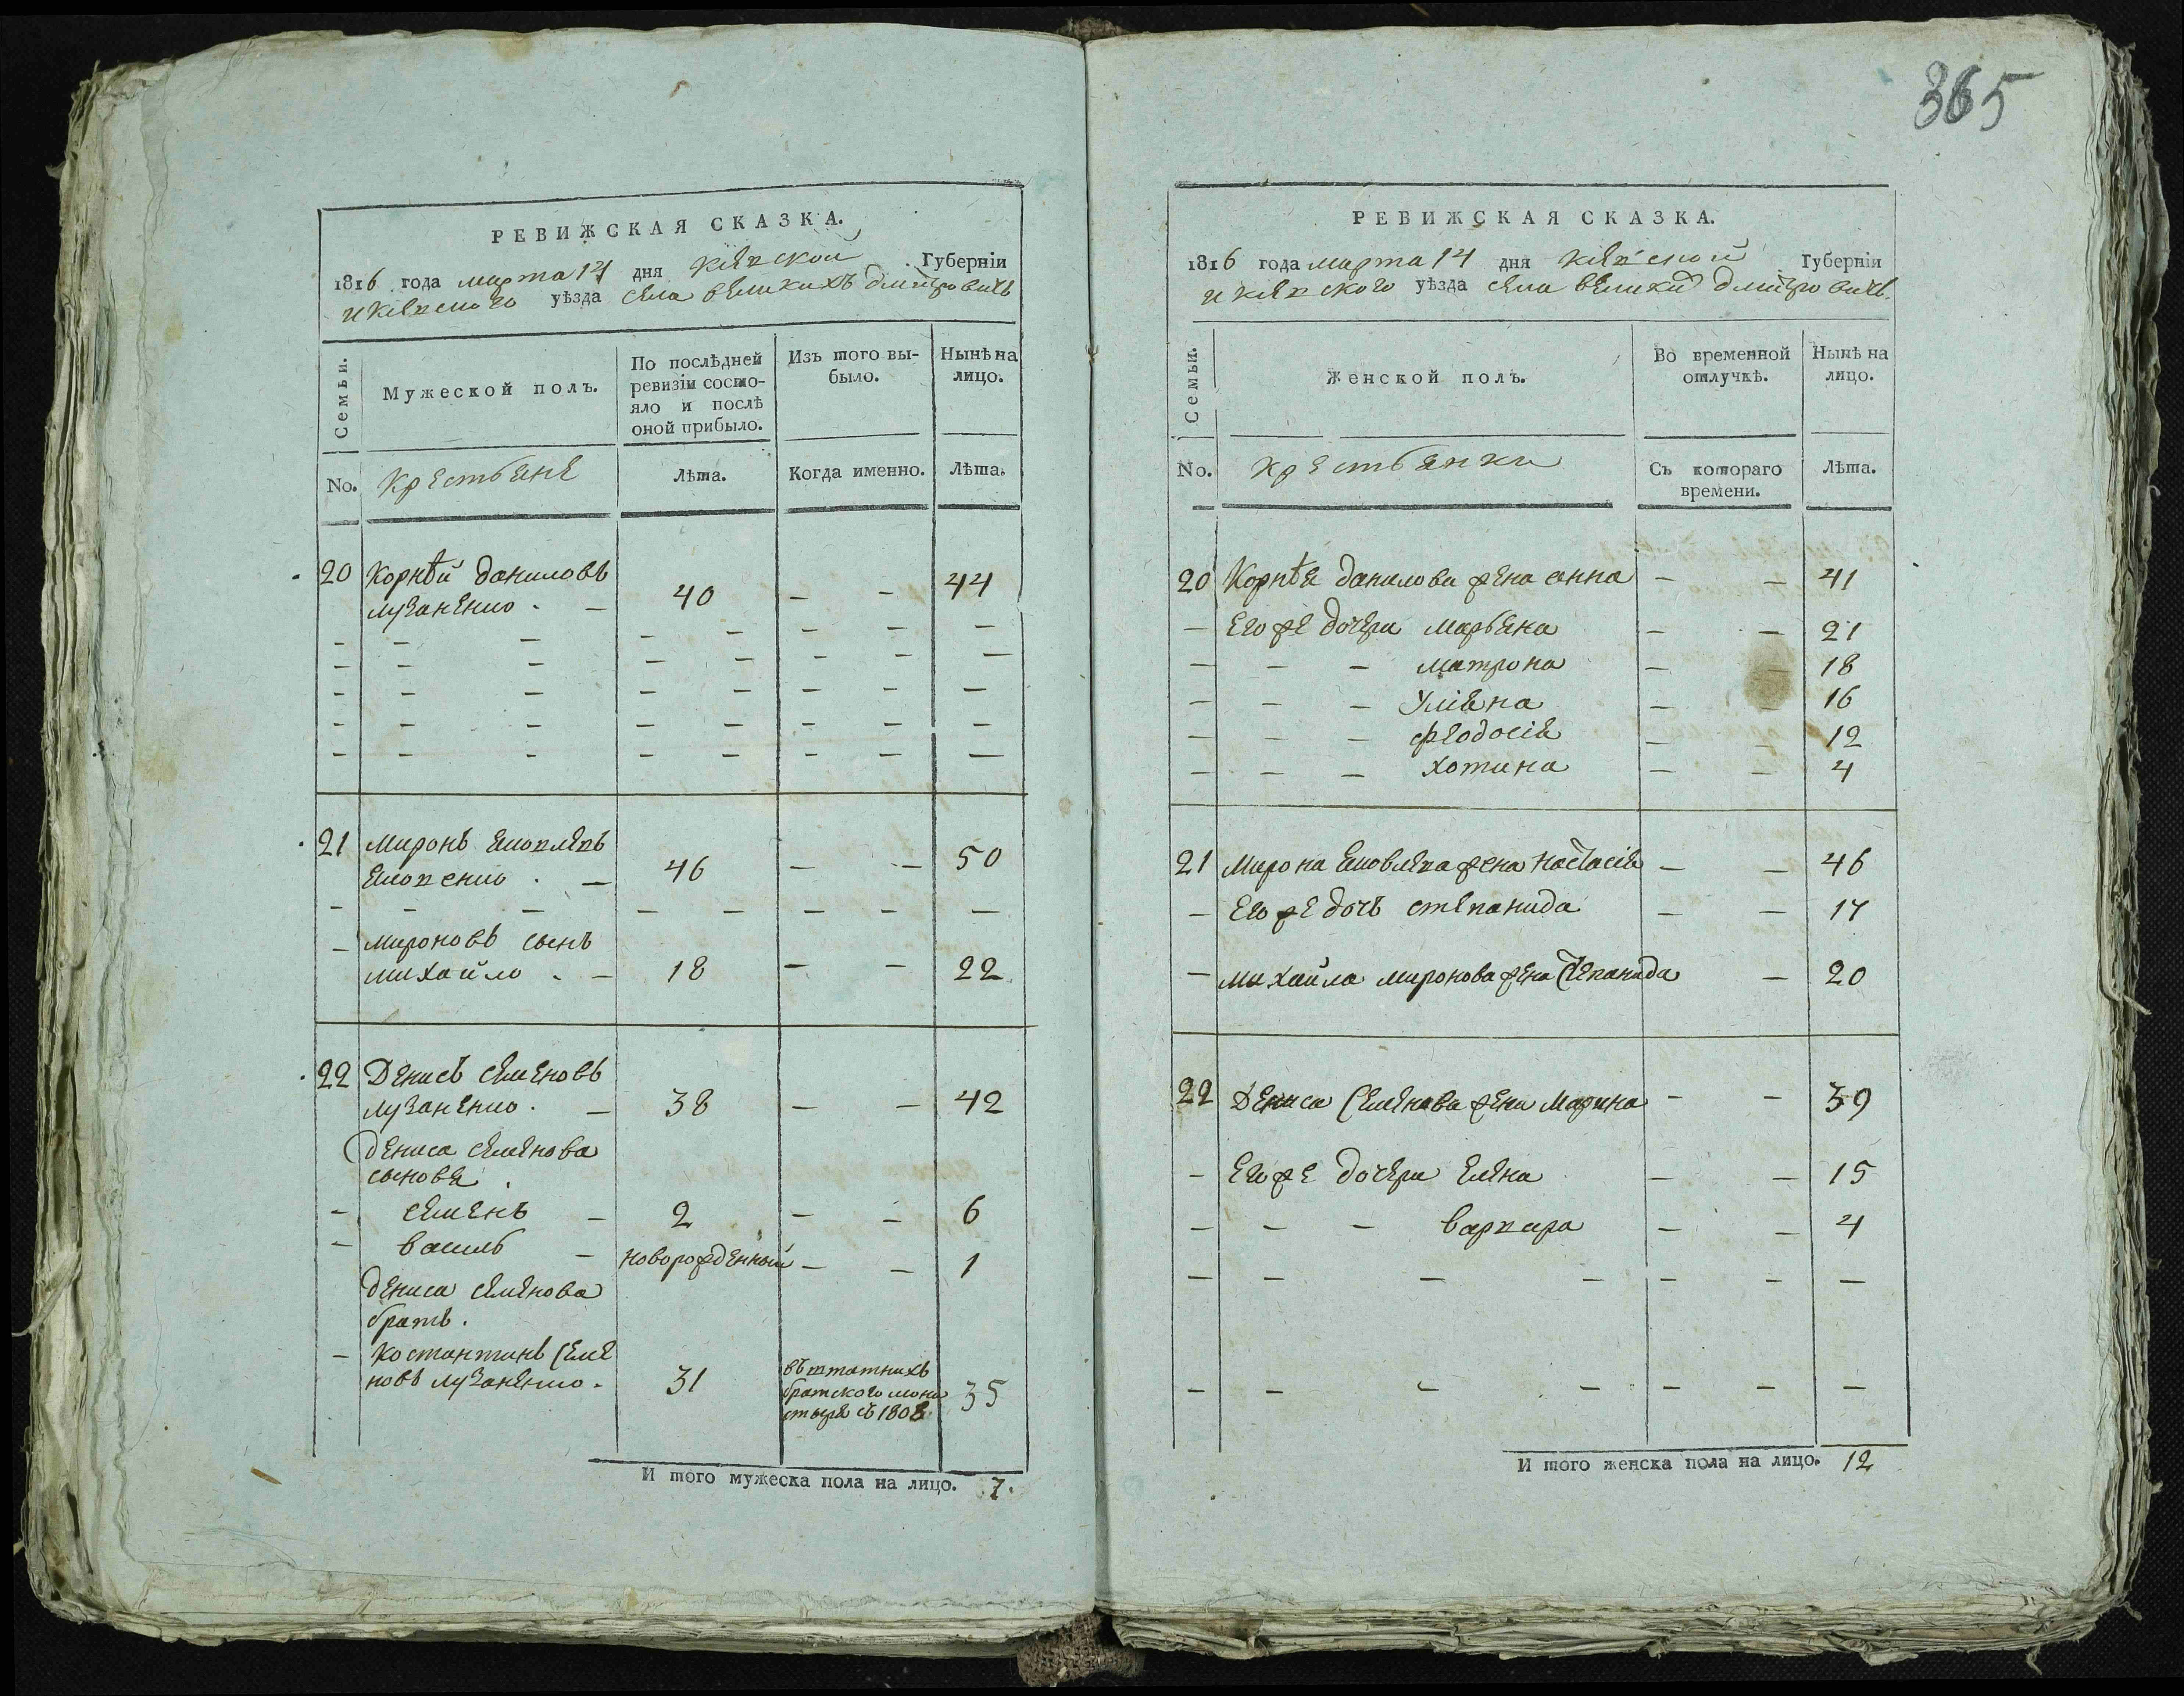 РЕВИЖСКАЯ СКАЗКА.
1816 года марта 14 дня Кіевской Губерніи
и Кіевского уѣзда села великихъ дмитровичь
Семьи.
Мужеской полъ.
По послѣдней ревизіи состо-
яло и послѣ
оной прибыло.
Изъ того вы-
было.
Нынѣ на
лицо.
No. Крестьяне
Лѣта.
Когда именно.
Лѣта.
20 Корнѣй даниловъ
лузаненко. – 40 – – 44
– – – – – – – –
– – – – – – – –
– – – – – – – –
– – – – – – – –
– – – – – – – –
21 Миронъ яковлевъ
яковенко. – 46 – – 50
– – – – – – – –
– мироновъ сынъ
михайло. – 18 – – 22
22 Денисъ семеновъ
лузаненко. – 38 – – 42
дениса семенова
сыновя.
– семенъ – 2 – – 6
– василь – новорожденный – – 1
дениса семенова
братъ.
– Костантинъ семе
новъ лузаненко. 31 въ штатныхъ
братского мона
стыря съ 1808 35
И того мужеска пола на лицо. 7.
365
РЕВИЖСКАЯ СКАЗКА.
1816 года марта 14 дня Кіевской Губерніи
и Кіевского уѣзда села великих дмитровичь.
Семьи.
Женской полъ.
Во временной
отлучкѣ.
Нынѣ на
лицо.
No. крестьянки
Съ котораго
времени.
Лѣта.
20 Корнѣя данилова жена анна – – 41
– Его же дочери марьяна – – 21
– – – матрона – – 18
– – – Уліяна – – 16
– – – феодосія – – 12
– – – хотина – – 4
21 Мирона яковлева жена настасія – – 46
– Его же дочь степанида – – 17
– михайла миронова жена степанида – 20
22 Дениса семенова жена Марина – – 39
– Его же дочери Елена – – 15
– – – варвара – – 4
– – – – – – –
– – – – – – –
И того женска пола на лицо. 12